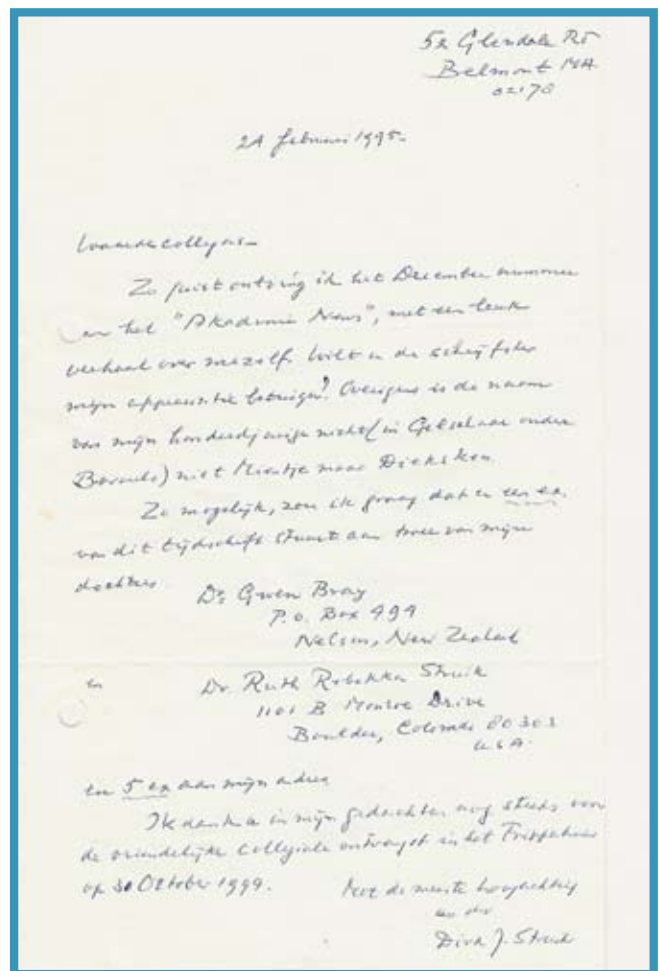 52 Glendale Rd
Belmont MA
02178
24 februari 1995.
Waarde collegas—
Zo juist ontving ik het December nummer
van het "Akademie News", met een leuk
verhaal over mezelf. Wilt u de schrijfster
mijn appreciatie betuigen? Overigens is de naam
van mijn honderdjarige nicht (in Gelselaar onder
Borculo) niet Mientje maar
Zo mogelijk, zou ik graag dat u een ex.
van dit tijdschrift stuurt aan twee van mijn
dochters.
Dr Gwen Bray
P.O. Box 494
Nelson, New Zealand
en Dr. Ruth Rebekka Struik
1101 B Monroe Drive
Boulder, Colorado 80303
USA.
en 5 ex aan mijn adres
Ik dank u in mijn gedachten nog steeds voor
de vriendelijke collegiale ontvangst in het Trippenhuis
op October 1994. Met de meeste hoogachting
Dirk J. Struik